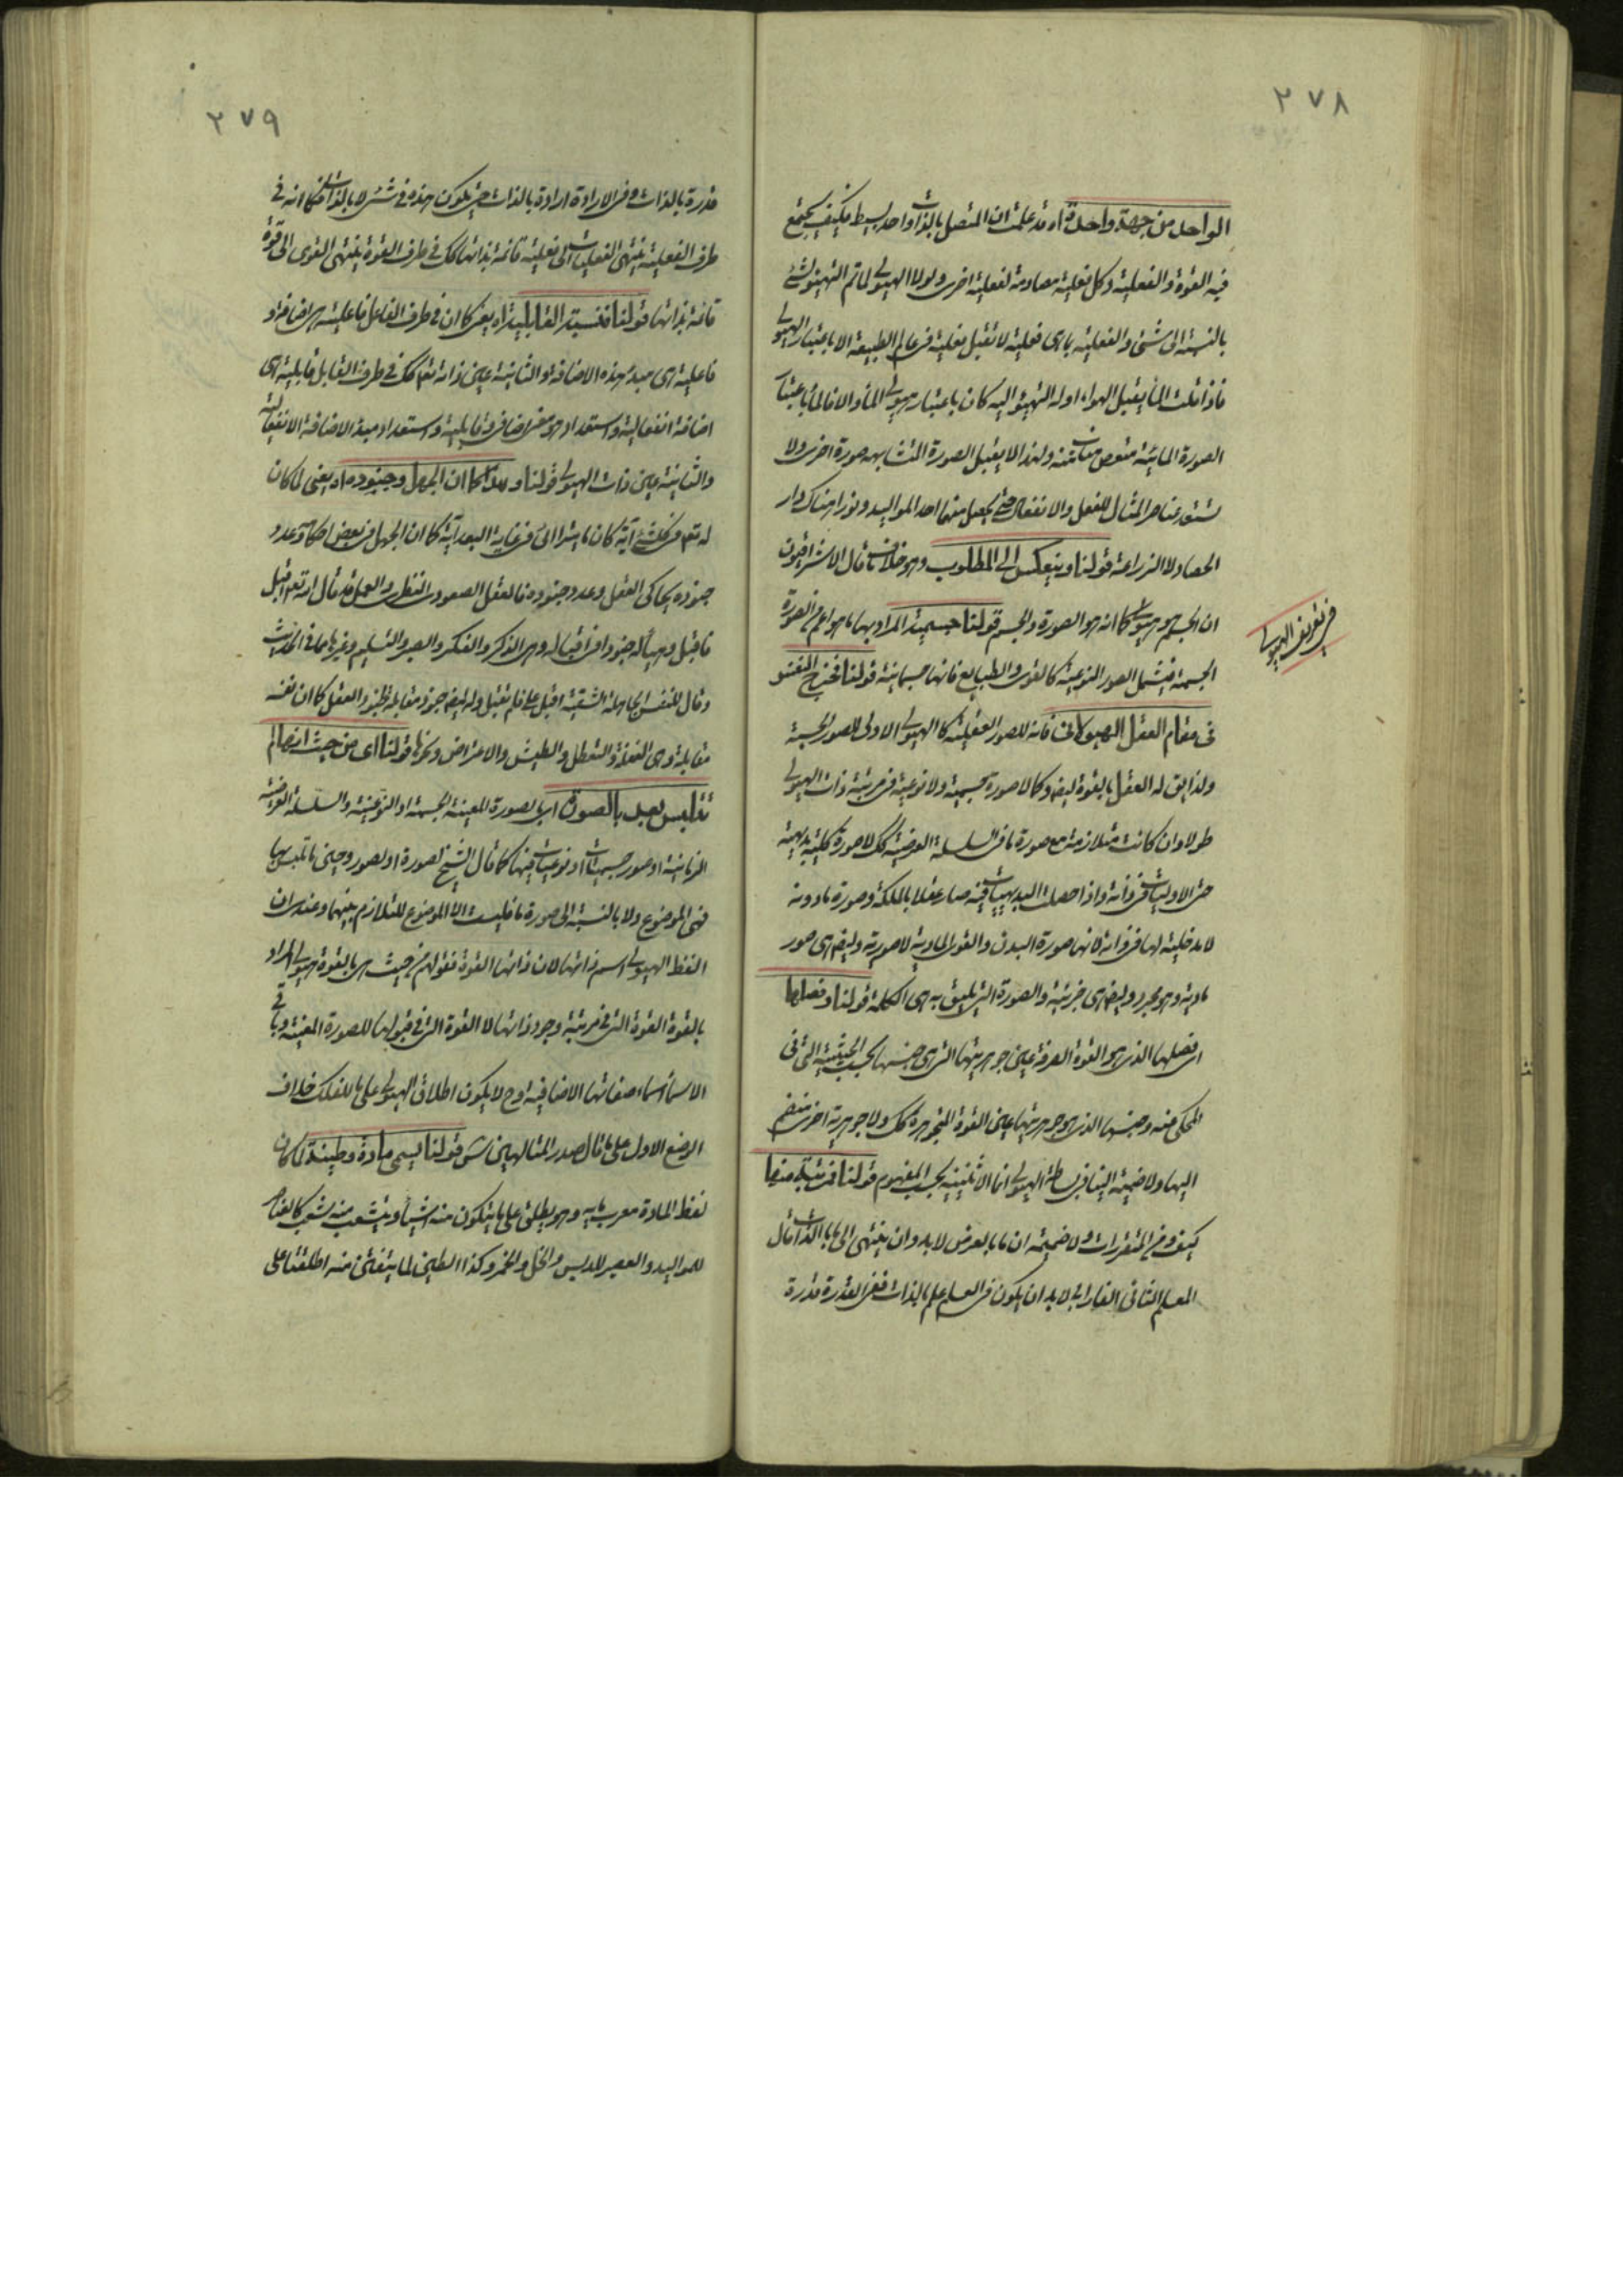 ٢٧٨
الواحد من جهة واحدة اه قد علمت ان المتصل بالذات واحد بسيط فكيف يجتمع
فيه القوة والفعلية وكل فعلية مصادمة لفعلية اخرى ولولا الهيولى لما تم التهيؤ لشئ
بالنسبة الى شئ والفعلية باهى فعلية لا تقبل فعلية فى عالم الطبيعة الا باعتبار الهيولى
فاذا قلت الماء يقبل الهواء او له التهيؤ اليه كان باعتبار هيولى الماء والا فالماء باعتبار
الصورة المائية متعصى ولهذا لا يقبل الصورة المتشابهه صورة اخرى ولا
عناصر المثال للفعل والانفعال حتى يحصل منها احد المواليد هناك دار
الحصاد لا الزراعة قولنا وينعكس الى المطلوب وهو خلاف ما قال الاشراقيون
ان الجسم هو هيولى كما انه هو الصورة والجسم قولنا جسمية المراد بها ما هو اعم من الصورة
فى تعريف الهيولى
الجسمية فتشمل الصور النوعية كالقوى والطبايع فانها جسمانية قولنا فخرج النفس
فى مقام العقل الهيولانى فانه للصور العقلية كالهيولى الاولى للصور الجسمية
ولذا يق له العقل بالقوة ايضا وكما لا صورة جسمية ولا نوعية فى مرتبة ذات الهيولى
طولا وان كانت متلازمة مع صورة ما فى السلسلة العرضية كك لا صورة كلية بديهية
حتى الاوليات فى ذاته واذا حصلت البديهيات فيه صار عقلا بالملكة وصورة مادونه
لا مدخلية لها فى ذاته لانها صورة البدن والقوى المادية لا صورته وايض هى صور
مادية وهو مجرد وايض هى جزئية والصورة التى يليق به هى الكلية قولنا وفصلها
اى فصلها الذى هو القوة الصرفة عين جوهريتها التى هى جنسها بحسب الحيثية التى فى
المحكى عنه وجنسها الذى هو جوهريتها عين القوة المتجوهرة كك ولا جوهرية اخرى منضم
اليها ولا ضميمة الينا فى بساطة الهيولى انما الاثنينية بحسب المفهوم قولنا قريبة منها
كيف ومن المتقررات ولا ضميمه ان ما بالعرض لا بد وان ينتهى الى ما بالذات قال
المعلم الثانى الفارابى لا بد ان يكون فى العلم علم بالذات وفى القدرة قدرة
٢٧٩
قدرة بالذات وفى الارادة ارادة بالذات حتى يكون هذه فى شئ لا بالذات فكما انه فى
طرف الفعلية ينتهى الفعليات الى فعلية قائمة بذاتها كك فى طرف القوة ينتهى القوى الى قوة
قائمة بذاتها قولنا فنسبة القابلية اه يعنى كما ان فى طرف الفاعل فاعلية هى اضافة و
فاعلية هى مبدء هذه الاضافة والثانية عين ذاته تعم كك فى طرف القابل قابلية هى
اضافة انفعالية واستعداد هو معنى اضافى وقابلية واستعداد مبدء الاضافة الانفعالية
والثانية عين ذات الهيولى قولنا وهذا كما ان الجهل وجنوده اه يعنى لما كان
له تعم فى كل شئ آية كان ما يشير الى فى غاية البعد آية كما ان الجهل فى بعض احكامه وعدد
جنوده يحاكى العقل وعدد جنوده فالعقل الصعودى النظرى والعملى قد قال له تعم اقبل
فاقبل وهيأ له جنودا فى اقباله وهى الذكر والفكر والصبر والتسليم وغيرها مما فى الحديث
وقال للنفس الجاهلة الشقية اقبلى فلم تقبل وله ايض جنود مقابلة لجنود العقل كما ان نفسه
مقابلة وهى الغفلة والتعطل والطيش والاعتراض ونحوها قولنا اى من حيث انها لم
تتلبس بعد بالصورة اى بالصورة المعينة الجسمية او النوعية والسلسلة العرضية
الزمانية او صور جسميات او نوعيات فيها كما قال الشيخ لصورة او لصور وحين ما تلبس بها
فهى الموضوع ولا بالنسبة الى صورة ما فليست الا الموضوع للتلازم بينهما وعندى ان
لفظ الهيولى اسم ذاتها لان ذاتها القوة فقولهم من حيث هى بالقوة هيولى المراد
بالقوة القوة التى فى مرتبة وجود ذاتها لا القوة التى فى قبولها للصورة المعينة وباقى
الاسماء اسماء صفاتها الاضافية وح لا يكون اطلاق الهيولى على ما للفلك خلاف
الوضع الاول على ما قال صدر المتالهين س قولنا يسمى مادة وطينة لما كان
لفظ المادة معرب مايه وهو يطلق على ما يتكون منه اشياء ويتشعب منه شعب كالعناصر
للمواليد والعصير للدبس والخل والخمر وكذا الطين لما يتفتن منه اطلقتا على